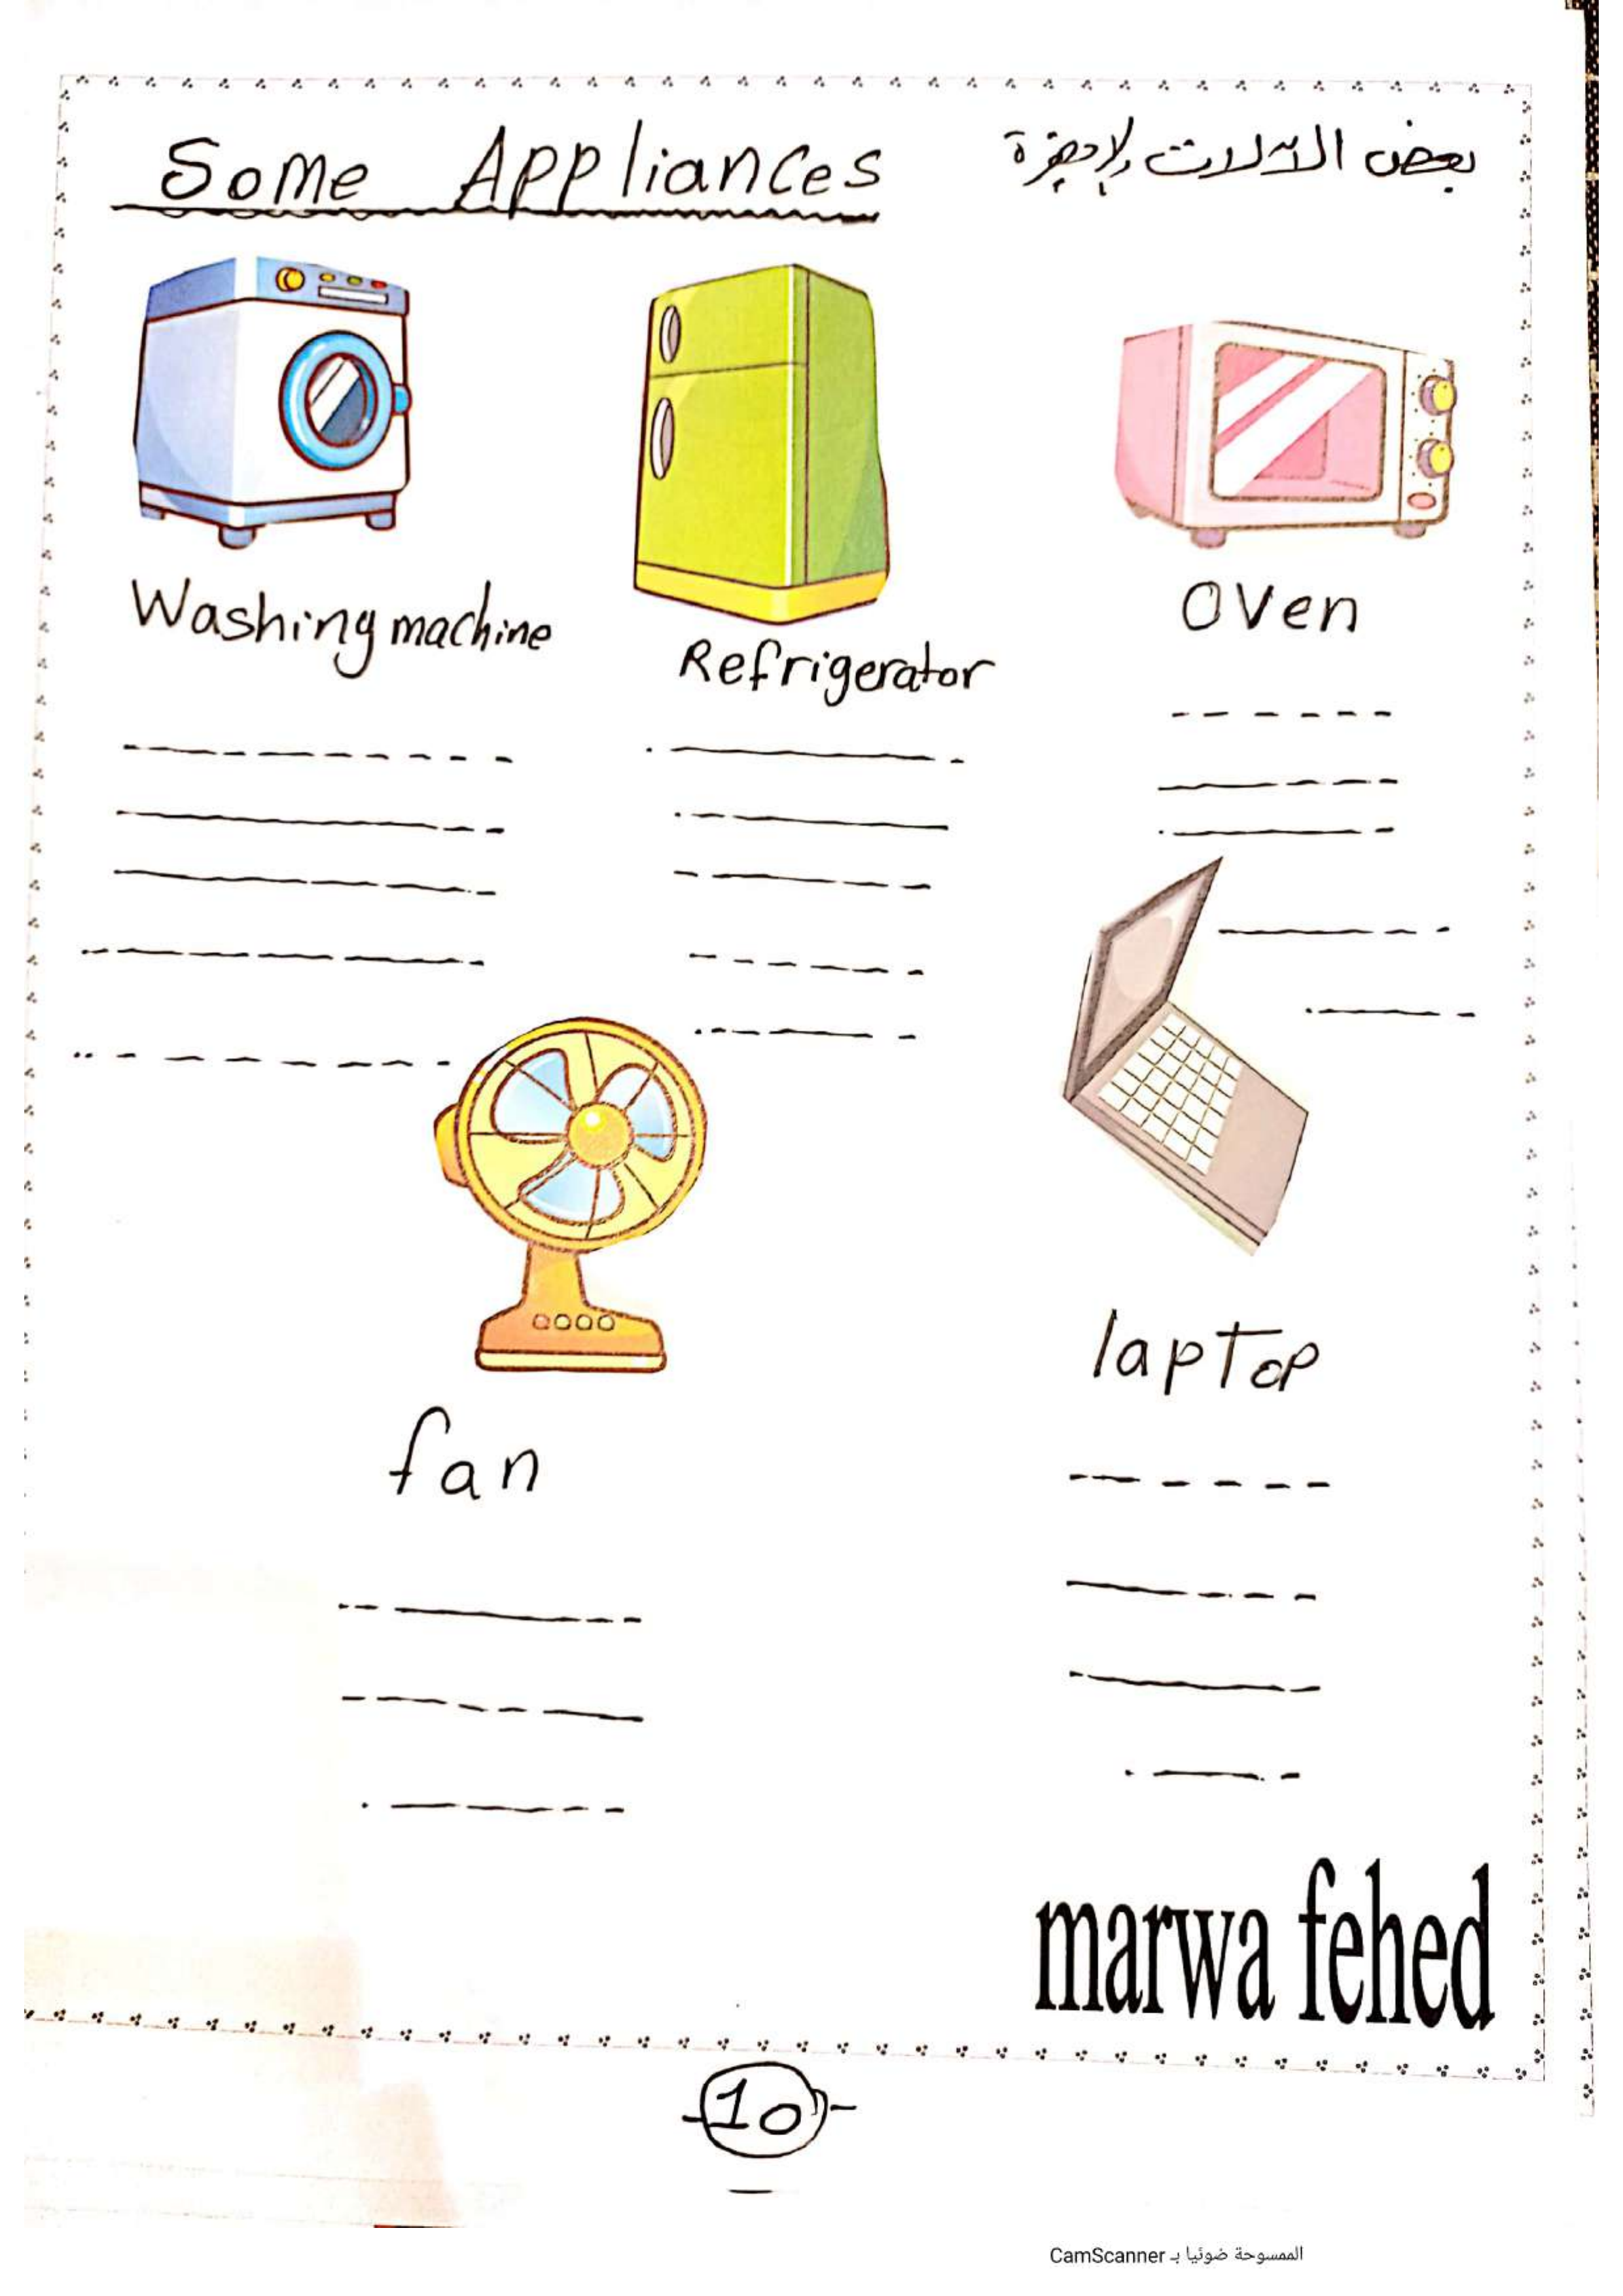 Some Appliances
بعض الآلات والاجهزة
Washing machine
Refrigerator
Oven
fan
laptop
marwa fehed
-10-
الممسوحة ضوئيا بـ CamScanner